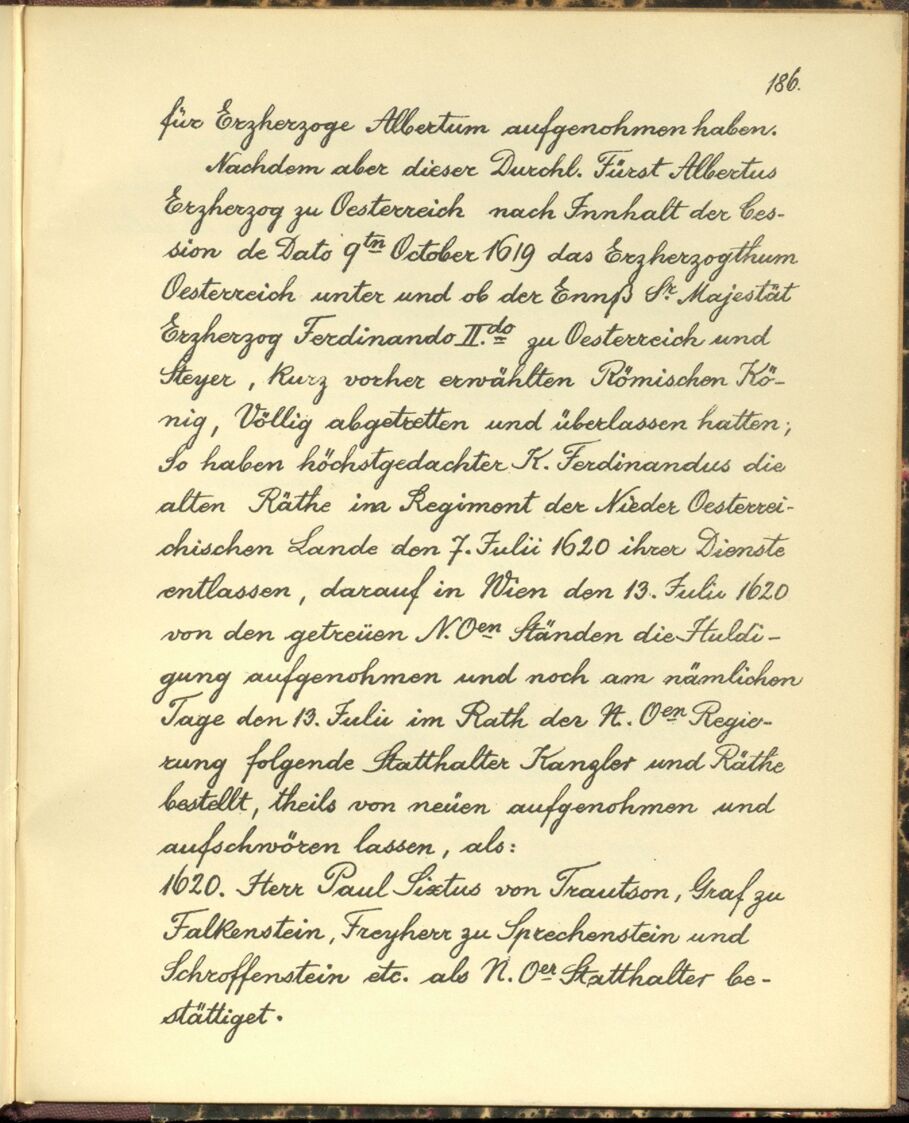 186.
für Erzherzoge Albertum aufgenohmen haben.
Nachdem aber dieser Durchl. Fürst Albertus
Erzherzog zu Oesterreich nach Innhalt der Ces-
sion de Dato 9tn October 1619 das Erzherzogthum
Oesterreich unter und ob der Ennß Sr. Majestät
Erzherzog Ferdinando II.do zu Oesterreich und
Steyer, kurz vorher erwählten Römischen Kö-
nig, Völlig abgetretten und überlassen hatten;
So haben höchstgedachter K. Ferdinandus die
alten Räthe im Regiment der Nieder Oesterrei-
chischen Lande den 7. Julii 1620 ihrer Dienste
entlassen, darauf in Wien den 13. Julii 1620
von den getreüen N. Oen Ständen die Huldi-
gung aufgenohmen und noch am nämlichen
Tage den 13. Julii im Rath der N. Oen Regie-
rung folgende Statthalter Kanzler und Räthe
bestellt, theils von neüen aufgenohmen und
aufschwören lassen, als:
1620. Herr Paul Sixtus von Trautson, Graf zu
Falkenstein, Freyherr zu Sprechenstein und
Schroffenstein etc. als N. Oer Statthalter be-
stättiget.